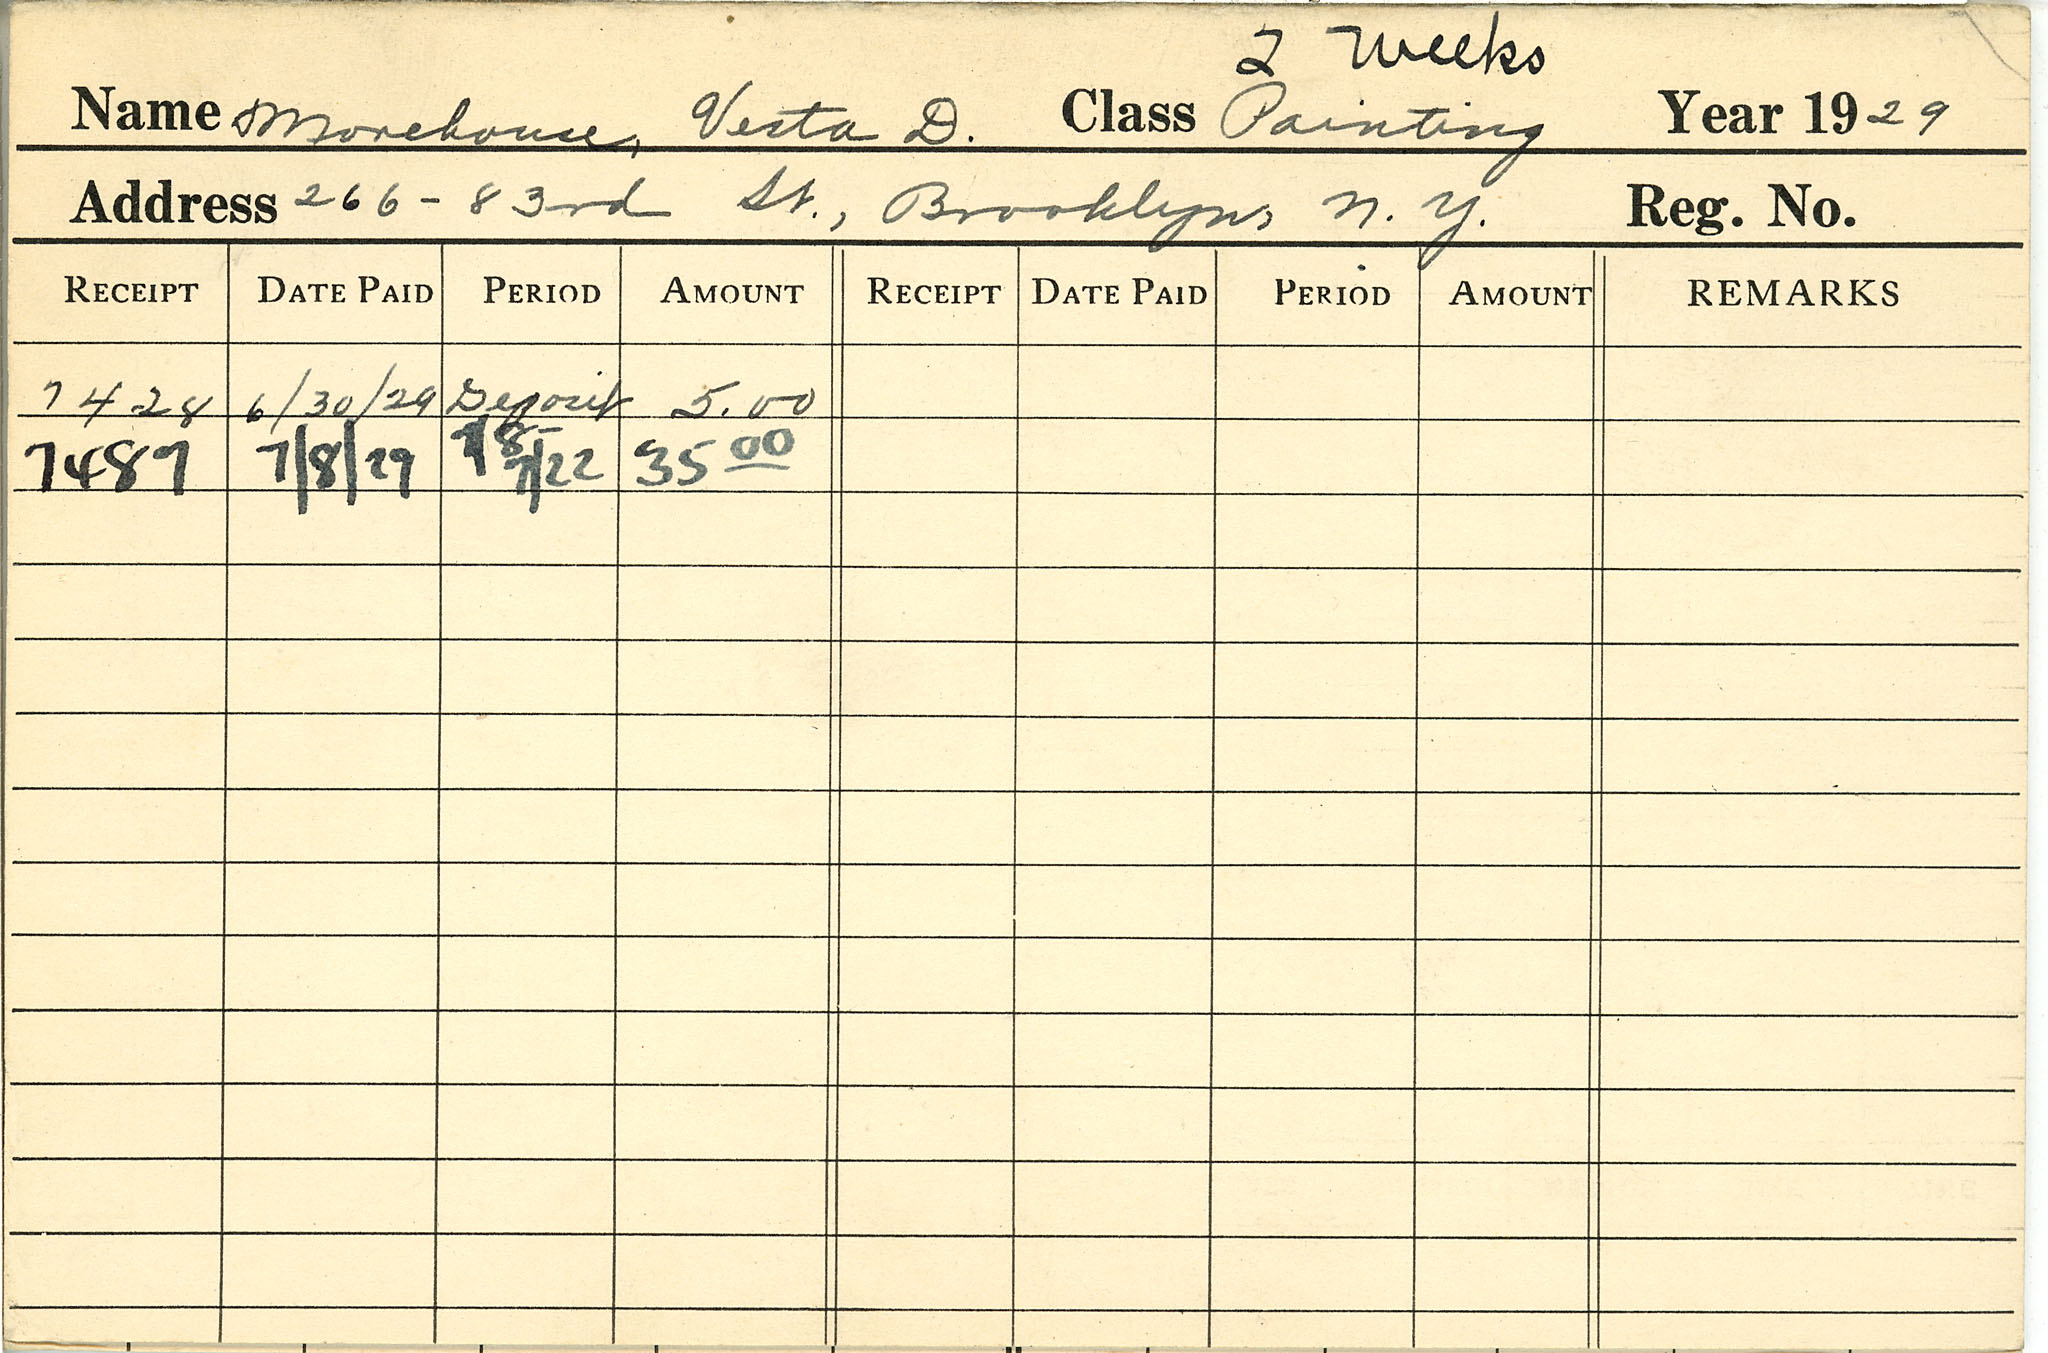 2 Weeks
Name Morehouse, Vesta D. Class Painting Year 1929
Address 266-83rd St., Brooklyn, N.Y. Reg. No.
RECEIPT DATE PAID PERIOD AMOUNT RECEIPT DATE PAID PERIOD AMOUNT REMARKS
7428 6/30/29 Deposit 5.00
7487 7/8/29 7/8- 7/22 35 00